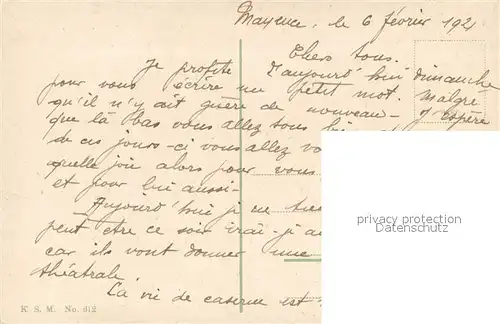 Mayence, le 6 février 1921
Chers tous.
Je profite d'aujourd'hui dimanche
pour vous écrire un petit mot. Malgré
qu'il n'y ait guère de nouveau - J'espère
que là bas vous allez tous
de ces jours-ci vous allez
quelle joie alors pour vous
et pour lui aussi -
Aujourd'hui je ne
peut etre ce soir irai-j
car ils vont donner une
théatrale.
La vie de caserne est
privacy protection
Markenverfall
K. S. M. No. 612